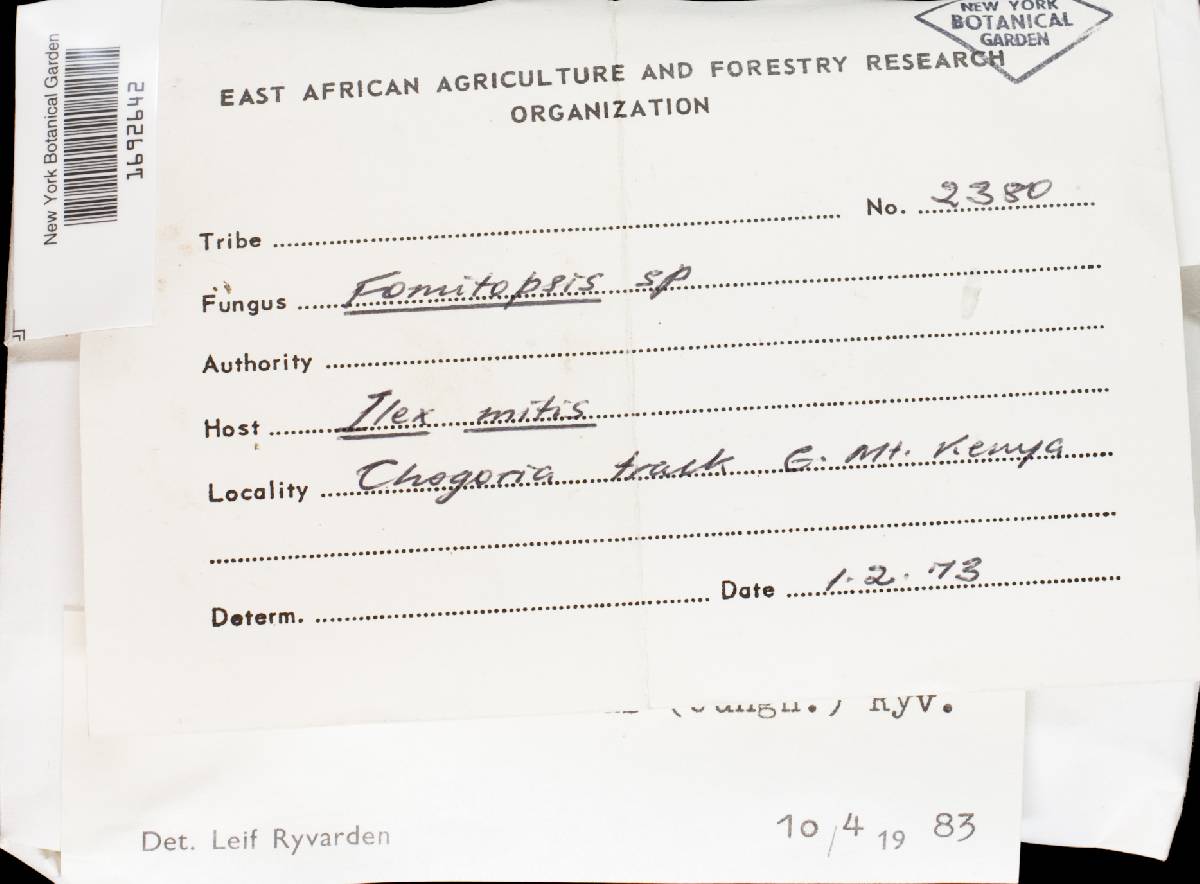 New York Botanical Garden
1692642
NEW YORK
BOTANICAL
GARDEN
EAST AFRICAN AGRICULTURE AND FORESTRY RESEARCH
ORGANIZATION
Tribe No. 2380
Fungus Fomitopsis sp
Authority
Host Ilex mitis
Locality Chogoria track E. Mt. Kenya
Determ. Date 1.2.73
(Jungh.) Ryv.
Det. Leif Ryvarden 10/4 19 83